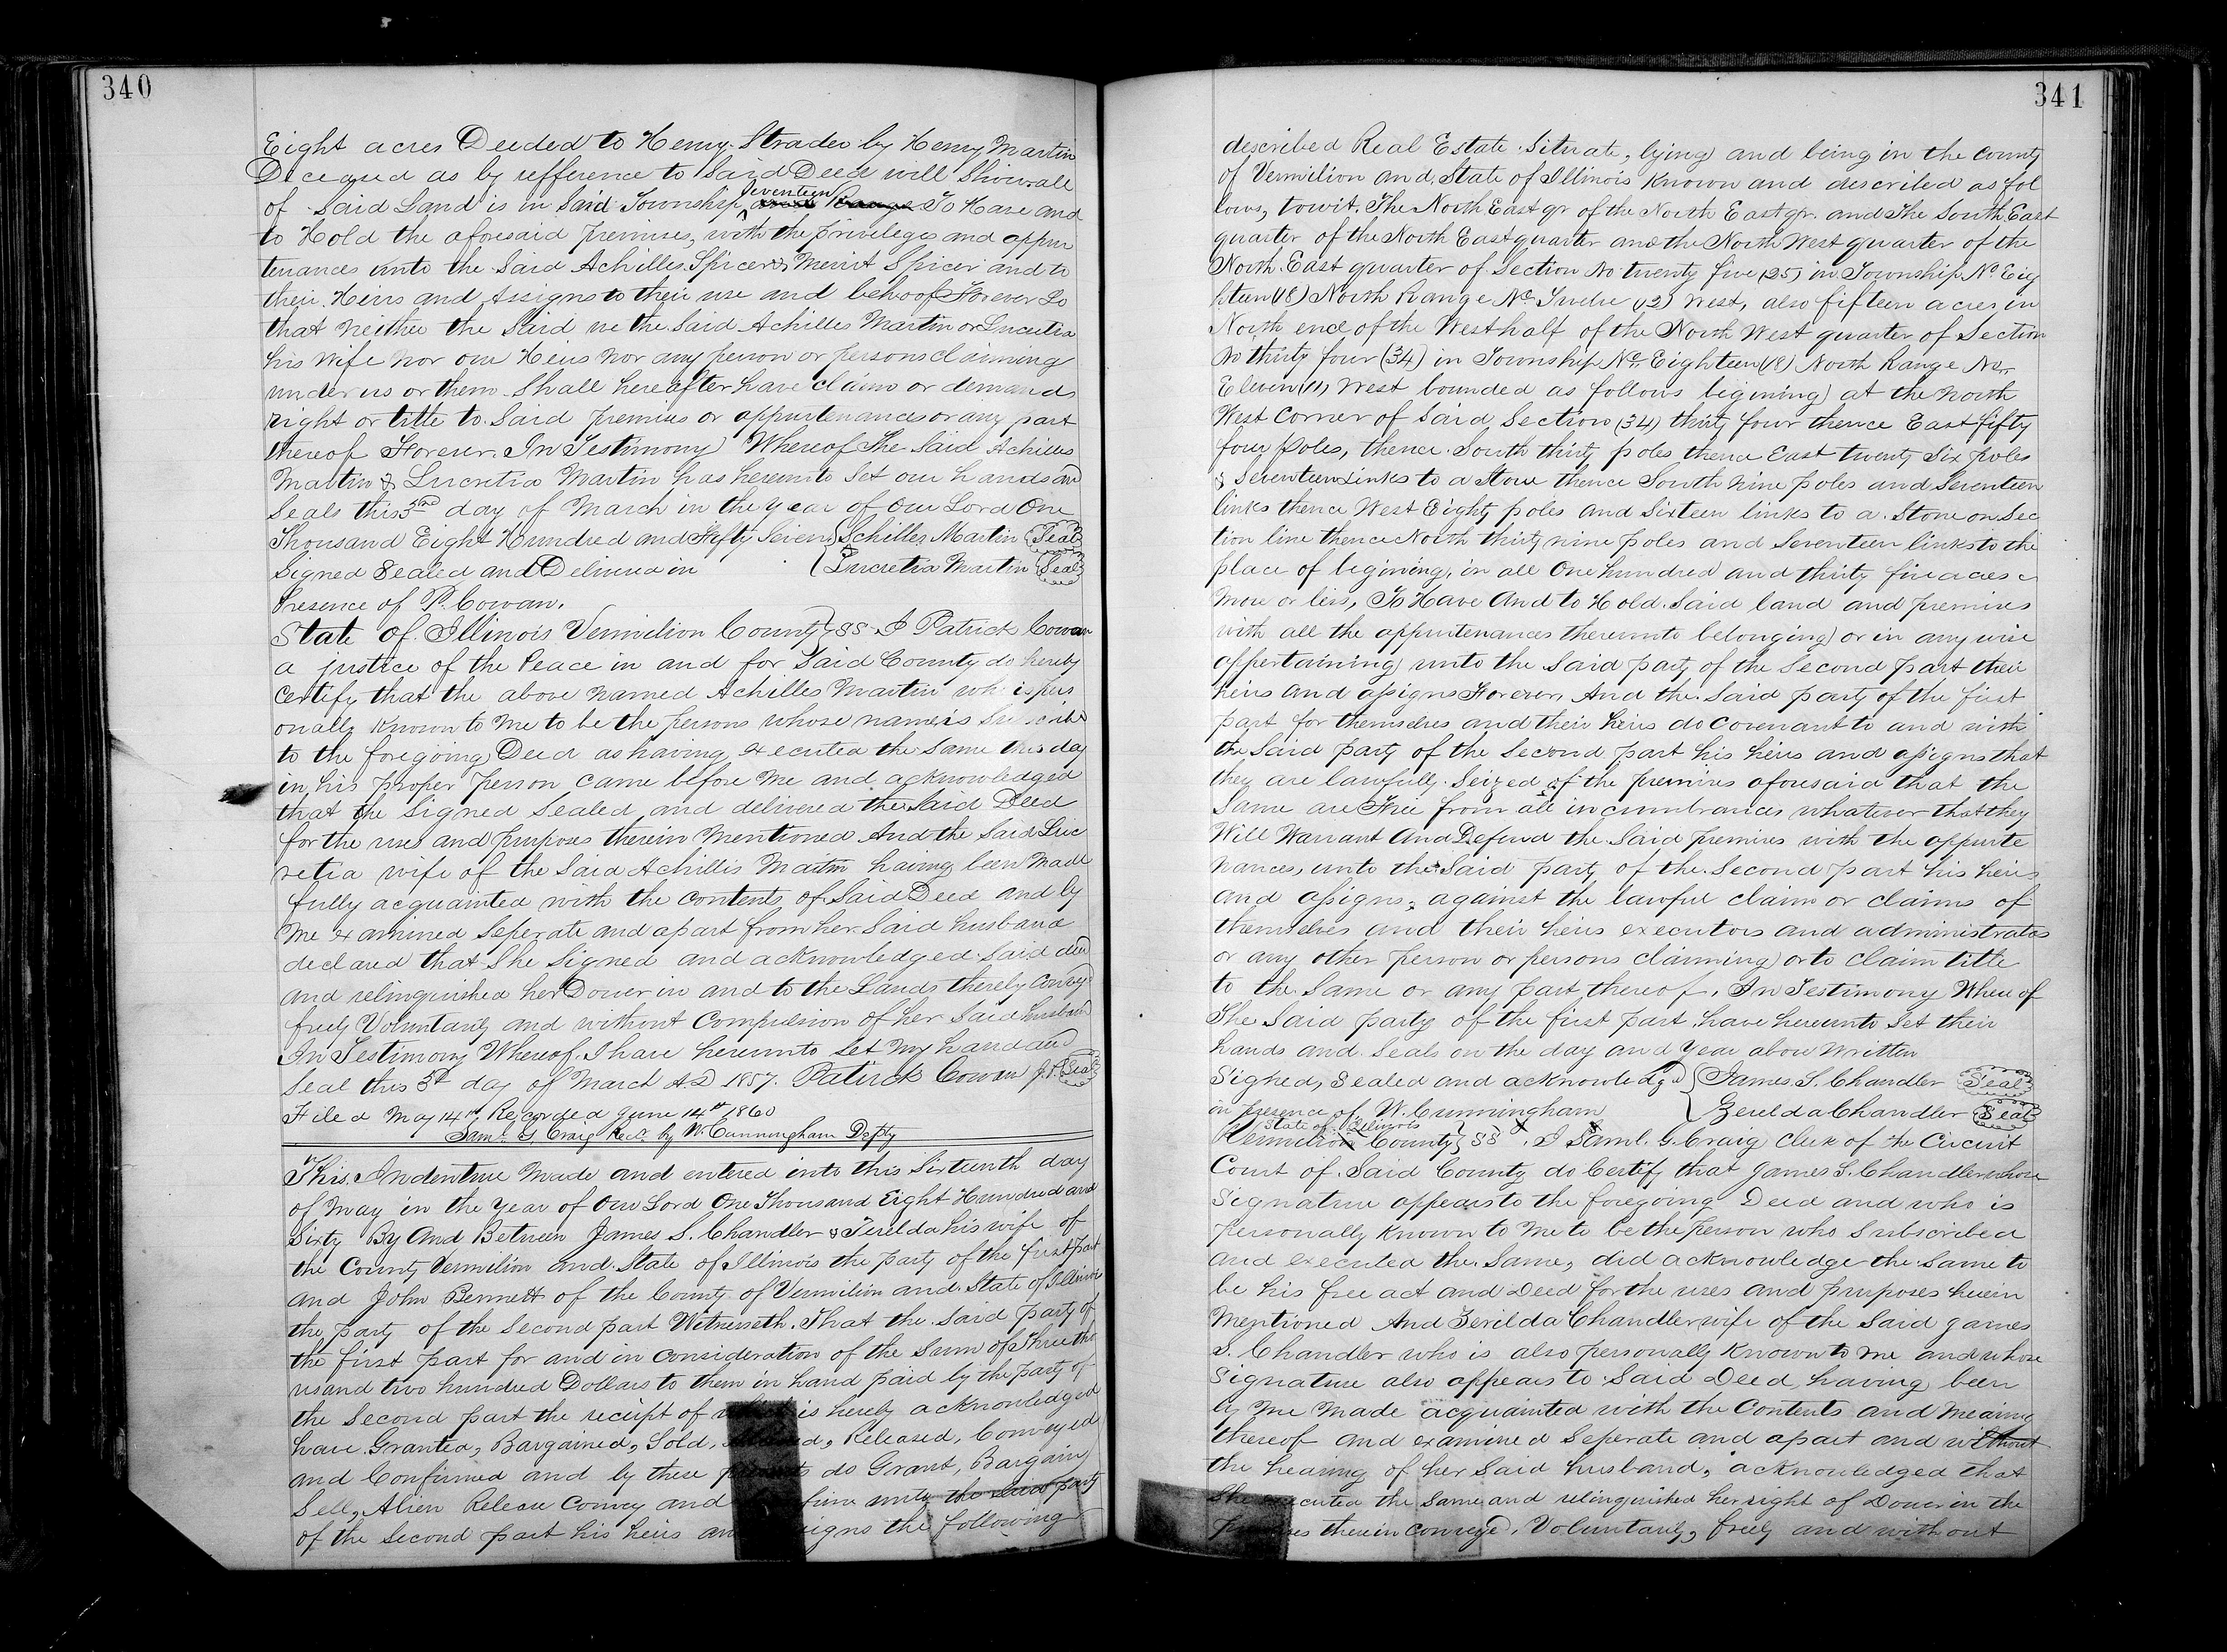 340
Eight acres Deeded to Henry Strader by Henry Martin
Deceased as by refference to Said Deed will Show. all
of Said Land is in Said Township Seventeen Range To Have and
to Hold the aforesaid premises, with the privileges and appur
tenances unto the Said Achilles Spicer & Merirt Spicer and to
their Heirs and Assigns to their use and behoof Forever So
that Neither the Said we the Said Achilles Martin or Lucretia
his Wife Nor our Heirs Nor any person or persons claiming
under us or them Shall hereafter have claim or demand
right or title to Said premises or appurtenances or any part
thereof Forever. In Testimony Whereof The Said Achilles
Martin & Lucretia Martin has hereunto Set our hands and
Seals this 3rd day of March in the year of our Lord One
Thousand Eight Hundred and Fifty Seven Achilles Martin Seal
Signed Sealed and Delivered in Lucretia Martin Seal
Presence of P. Cowan.
State of Illinois Vermilion County SS I Patrick Cowan
a justice of the Peace in and for Said County do hereby
certify that the above Named Achilles Martin who is pers
onally Known to Me to be the persons whose name is Subscribed
to the foregoing Deed as having executed the Same this day
in his proper person came before Me and acknowledged
that the Signed Sealed and delivered the Said Deed
for the uses and purposes therein Mentioned And the Said Luc
retia wife of the Said Achillis Martin having been Made
fully acquainted with the contents of Said Deed and by
Me examined Seperate and apart from her Said husband
declared that She Signed and acknowledged Said deed
and relinquished her Dower in and to the Lands thereby Conveyed
freely Voluntarily and without Compulsion of her Said husband
In Testimony Whereof I have hereunto Set My hand and
Seal this 3d day of March A.D 1857. Patrick Cowan J.P. Seal
Filed May 14th Recorded June 14th 1860
Saml. G Craig Recr. by W. Cunningham Depty
This Indenture Made and entered into this Sixteenth day
of May in the Year of Our Lord One Thousand Eight Hundred and
Sixty By And Between James S. Chandler & Zerilda his wife of
the County Vermilion and State of Illinois the party of the first part
and John Bennett of the County of Vermilion and State of Illinois
the party of the Second part Witnesseth. That the Said party of
the first part for and in consideration of the Sum of Three tho
usand two hundred Dollars to them in hand paid by the party of
the Second part the receipt of is hereby acknowledged
have Granted, Bargained, Sold, Released, Conveyed
and Confirmed and by these presents do Grant, Bargain
Sell, Alien Release Convey and Confirm unto the Said party
of the Second part his heirs and assigns the following
341
described Real Estate Situate, lying and being in the County
of Vermilion and State of Illinois Known and described as fol
lows, towit. The North East qr of the North East qr. and The South East
quarter of the North East quarter and the North West quarter of the
North East quarter of Section No twenty five (25) in Township No. Eig
hteen (18) North Range No Twelve (12) West, also fifteen acres in
North end of the West half of the North West quarter of Section
No thirty four (34) in Township No. Eighteen (18) North Range No.
Eleven (11) West bounded as follows begining at the North
West Corner of Said Section (34) thirty four thence East fifty
four poles, thence South thirty poles thence East twenty Six poles
& Seventeen Links to a Stone thence South Nine poles and Seventeen
links thence West Eighty poles and Sixteen links to a Stone on Sec
tion line thence North thirty nine poles and Seventeen links to the
place of begining, in all One hundred and thirty five acres
More or less, To Have And to Hold Said land and premises
with all the appurtenances thereunto belonging or in any wise
appertaining unto the Said party of the Second part their
heirs and assigns Forever, And the Said party of the first
part for themselves and their heirs do Covenant to and with
the Said party of the Second part his heirs and assigns that
they are lawfully Seized of the premises aforesaid that the
Same are Free from all incumbrances whatever that they
Will Warrant And Defend the Said premises with the appurte
nances, unto the Said party of the Second part his heirs
and assigns, against the lawful claim or claims of
themselves and their heirs executors and administrators
or any other person or persons claiming or to claim title
to the Same or any part thereof. In Testimony Where of
The Said party of the first part have hereunto Set their
hands and Seals on the day and Year above Written
Signed, Sealed and acknowledged James S. Chandler Seal
in presence of W. Cunningham Zerelda Chandler Seal
State of Illinois
Vermilion County SS. I Saml. G. Craig Clerk of the Circuit
Court of Said County do Certify that James S. Chandler whose
Signature appears to the foregoing Deed and who is
personally Known to Me to be the person who Subscribed
and executed the Same, did acknowledge the Same to
be his free act and Deed for the uses and purposes herein
Mentioned And Zerilda Chandler wife of the Said James
S. Chandler who is also personally Known to me and whose
Signature also appears to Said Deed, having been
by Me Made acquainted with the Contents and Meaing
thereof and examined Seperate and apart and without
the hearing of her Said husband, acknowledged that
She executed the Same and relinquished her right of Dower in the
premises therein Conveyed, Voluntarily, freely and without